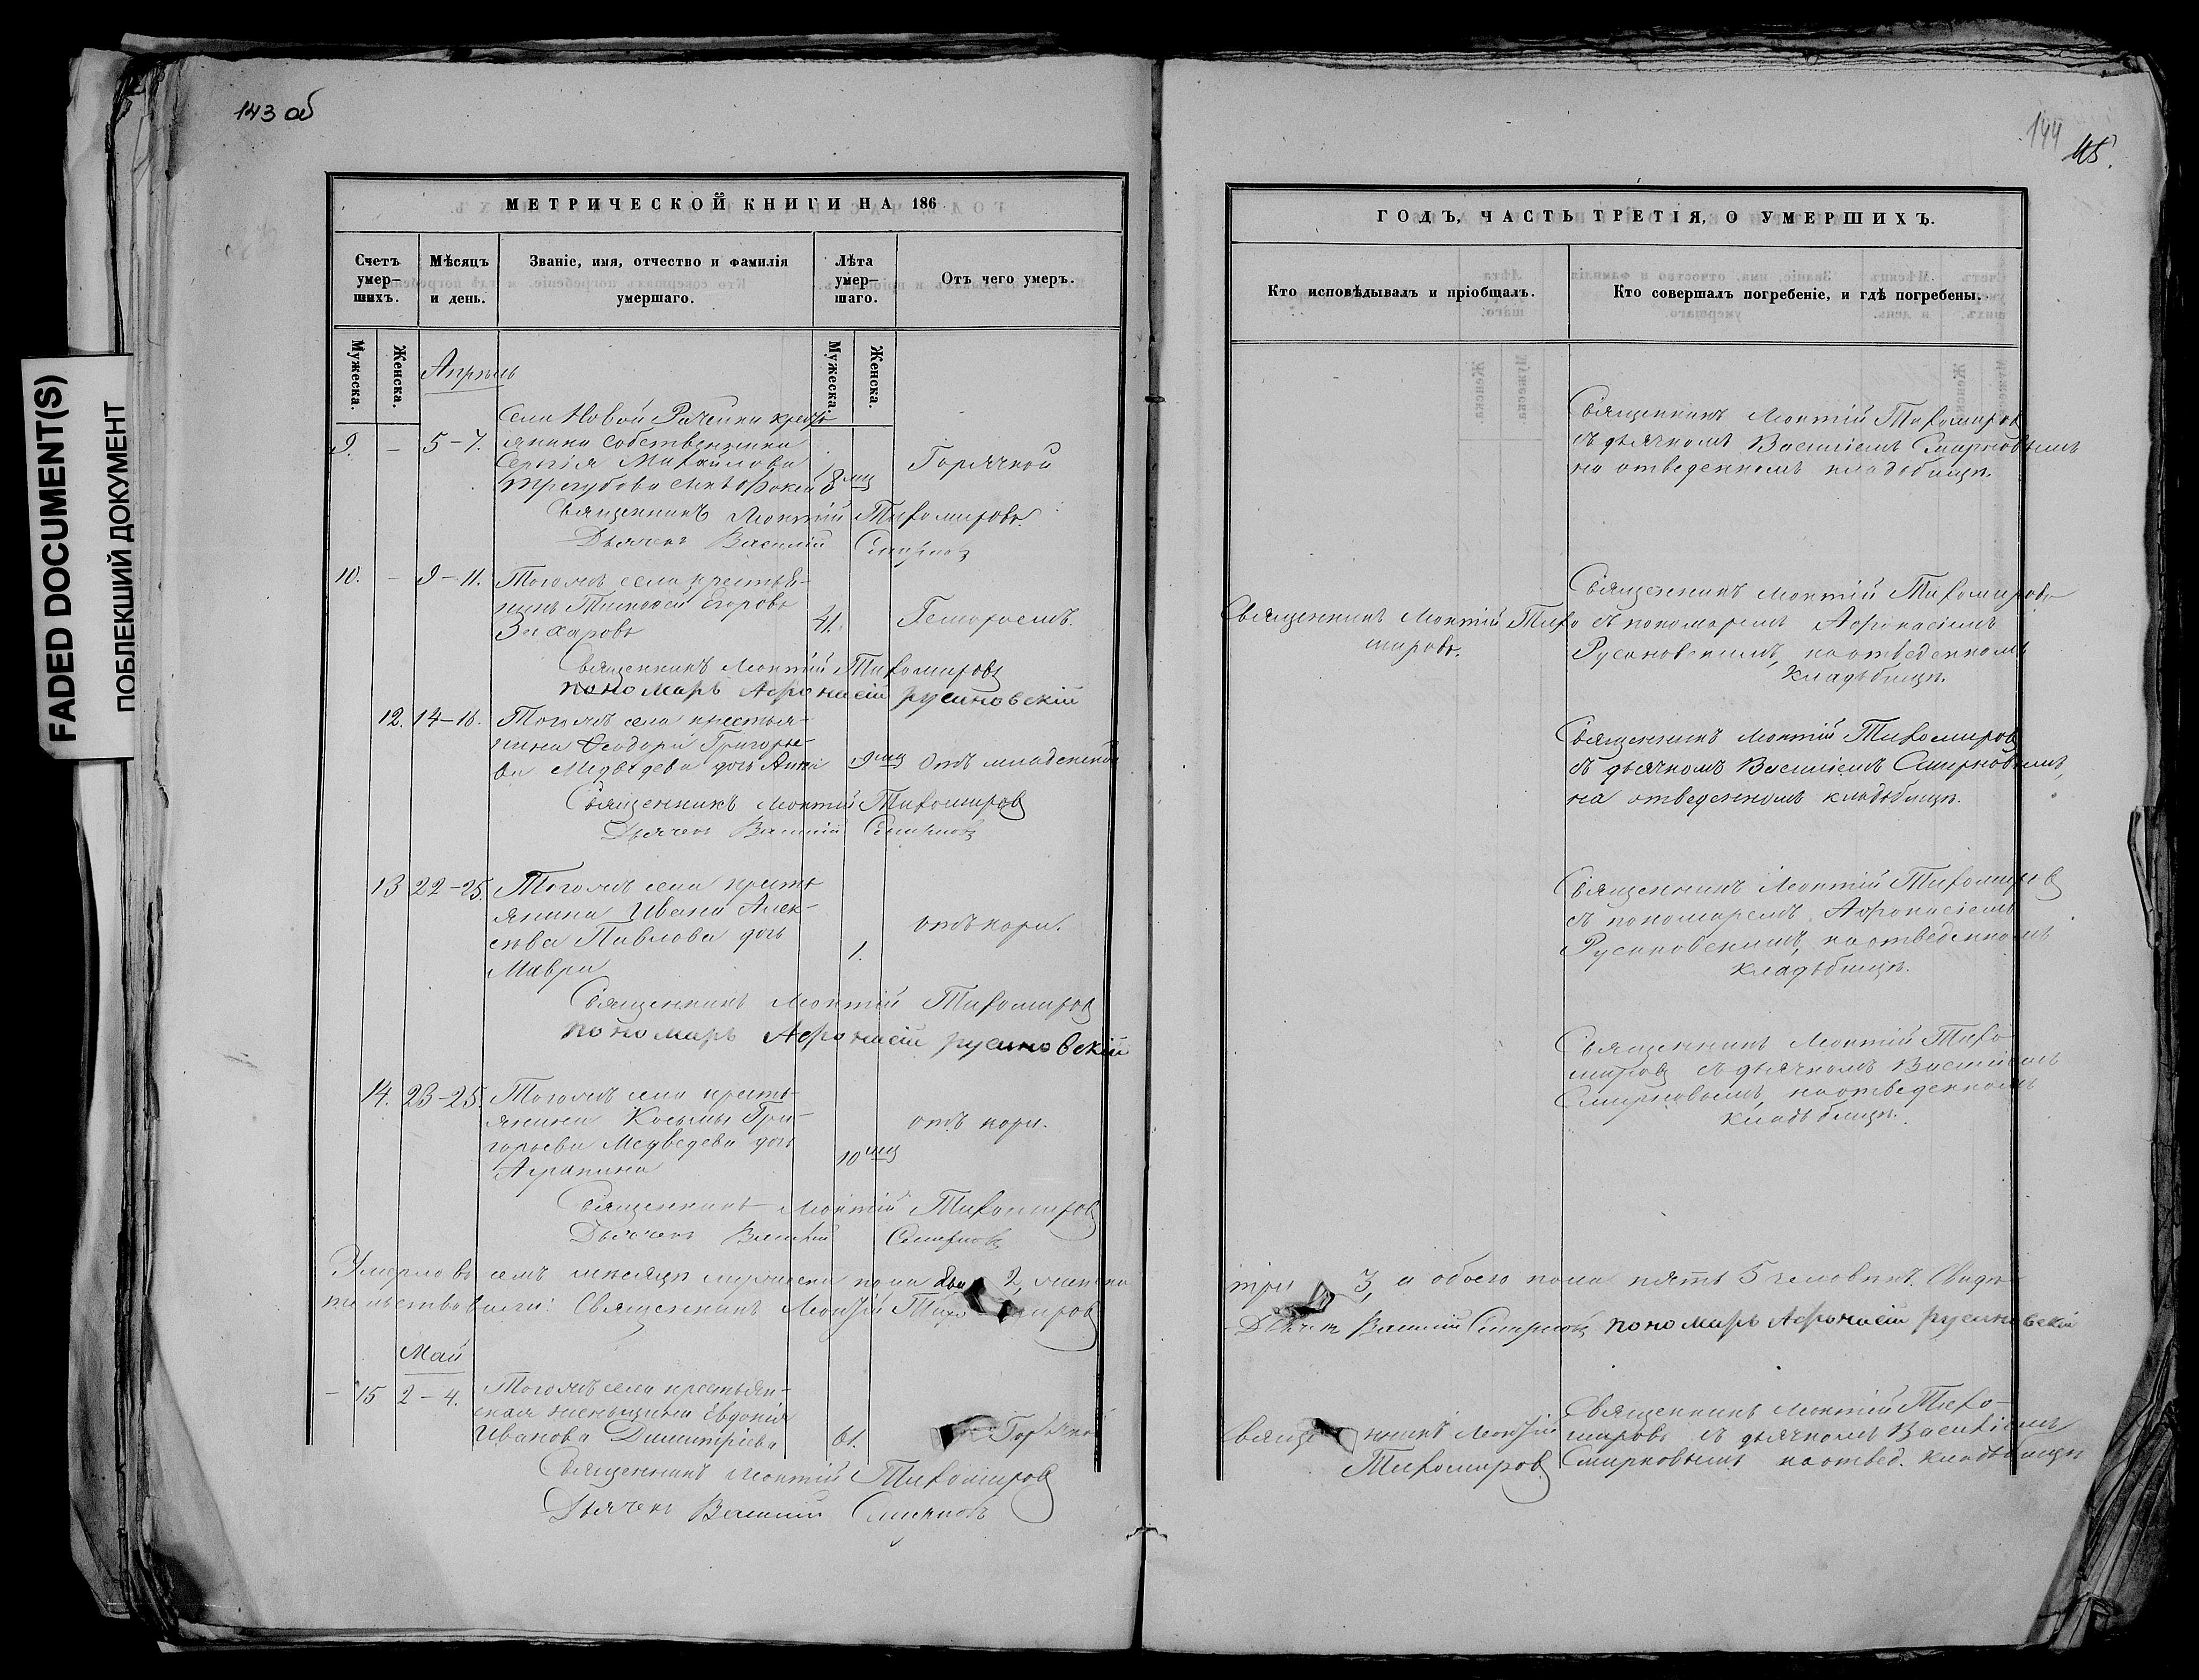 143 об
144
FADED DOCUMENT(S)
ПОБЛЕКШИЙ ДОКУМЕНТ
МЕТРИЧЕСКОЙ КНИГИ НА 186
Счетъ умер–шихъ.
Мѣсяцъ и день.
Званіе, имя, отчество и фамилія умершаго.
Лѣта умер–шаго.
Отъ чего умеръ.
Мужеска.
Женска.
Мужеска.
Женска.
Апрѣль
Села Новой Рачейки кресть
9. – 5–7. янина собственника
Сергія Михайлова
Трегубова сынъ 8 мц Горячкой
Священникъ Леонтій Тихомировъ
Дьячекъ Василій Смирновъ
10. – 9–11. Тогожъ села крестья-
нинъ Тимофей Егоровъ
Захаровъ 41. Гемороемъ.
Священникъ Леонтій Тихомировъ
пономарь Афонасій русановскій
12. 14–16. Тогожъ села крестья-
нина Ѳеодора Григорье-
ва Медведева дочь Анна 9 мц Отъ младенской
Священникъ Леонтій Тихомировъ
Дьячекъ Василій Смирновъ
13 22–25. Тогожъ села кресть
янина Ивана Алек-
сѣева Павлова дочь
Мавра 1. отъ кори.
Священникъ Леонтій Тихомировъ
пономарь Афонасій русановскій
14. 23–25. Тогожъ села кресть-
янина Косьмы Гри-
горьева Медведева дочь
Агрипина 10 мц отъ кори.
Священникъ Леонтій Тихомировъ
Дьячекъ Василій Смирновъ
Умерло въ семъ месяцѣ мужеска пола два 2, женска
тельствовали: Священникъ Леонтій Тихомировъ
Май
– 15 2–4. Тогожъ села крестьян-
ская женьщина Евдокія
Иванова Димитріева 61. Горячкой
Священникъ Леонтій Тихомировъ
Дьячекъ Василій Смирновъ
ГОДЪ, ЧАСТЬ ТРЕТІЯ, О УМЕРШИХЪ.
Кто исповѣдывалъ и пріобщалъ.
Кто совершалъ погребеніе, и гдѣ погребены.
Священникъ Леонтій Тихомировъ
съ дьячкомъ Василіемъ Смирновымъ
на отведенномъ кладбищѣ.
Священникъ Леонтій Тихо
мировъ.
Священникъ Леонтій Тихомировъ
съ пономаремъ Афонасіемъ
Русановскимъ, на отведенномъ
кладъбищѣ.
Священникъ Леонтій Тихомировъ
съ дьячкомъ Василіемъ Смирновымъ,
на отведенномъ кладбищѣ.
Священникъ Леонтій Тихомировъ
съ пономаремъ Афонасіемъ
Русановскимъ, на отведенномъ
кладъбищѣ.
Священникъ Леонтій Тихо
мировъ съ дьячкомъ Василіемъ
Смирновымъ, на отведенномъ
кладъбищѣ.
три 3, а обоего пола пять 5 человѣкъ. Свидѣ
Дьячекъ Василій Смирновъ пономарь Афонасій русановскій
Священникъ Леонтій
Тихомировъ
Священникъ Леонтій Тихо-
мировъ съ дьячкомъ Василіемъ
Смирновымъ на отвед. кладъбищѣ